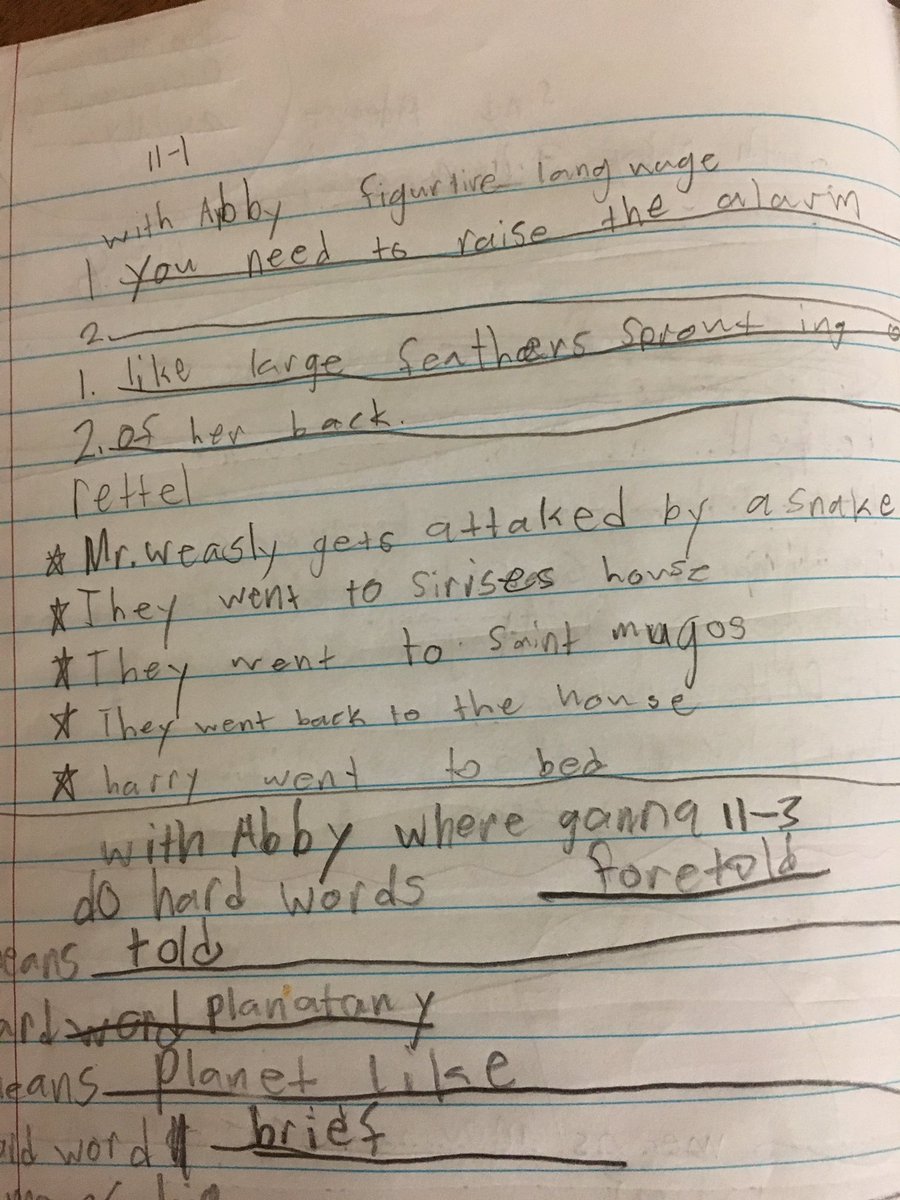 11-1
with Abby figurtive lang uage
1 you need to raise the alarm
2.
1. like large feathers sprout ing o
2. of her back.
rettel
☆ Mr. weasly gets attaked by a snake
☆ They went to sirises house
☆ They went to saint mugos
☆ They went back to the house
☆ harry went to bed
with Abby where ganna 11-3
do hard words foretold
eans told
ard word planatary
eans planet like
word brief